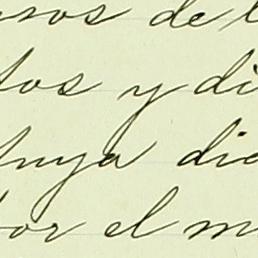 sos de l
tos y di
tuya dic
por el m